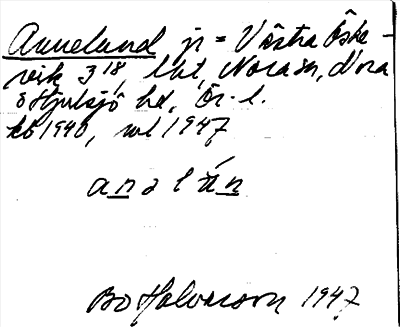 Anneland jr = Västra Öske-
vik 3¹⁸, lht, Nora sn, Nora
o Hjulsjö hd, Ör. l.
kb 1940, ml 1947
anəlán
Bo Halvarson 1947